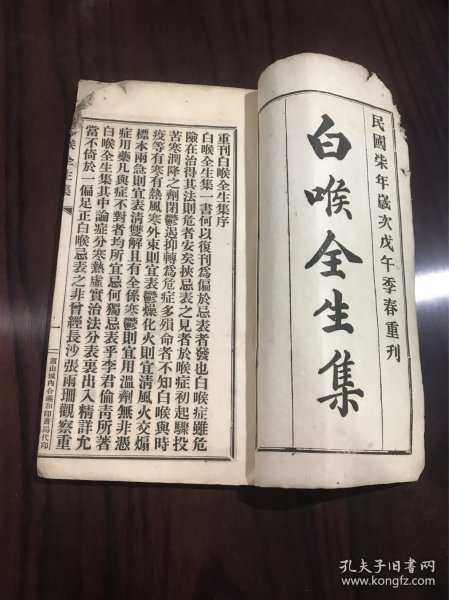 民國柒年歲次戊午季春重刊
白喉全生集
重刊白喉全生集序
白喉全生集一書何以復刊爲偏於忌表者發也白喉症雖危
險在治得其法則危者安矣挾忌表之見者於喉症初起驟投
苦寒潤降之劑閉鬱遏抑轉爲危症多殞命者不知白喉與時
疫等有寒有熱風寒外束則宜表鬱燥化火則宜清風火交煽
標本兩急則宜表清雙解且有全係寒鬱則宜用溫劑無非憑
症用藥凡與症不對者均所宜忌何獨忌表乎李君倫青所著
白喉全生集其中論症分寒熱虛實治法分表裏出入精詳允
當不倚於一偏足正白喉忌表之非曾經長沙張雨珊觀察重
喉全生集
蕭山城內合義和印書局代印
孔夫子旧书网
www.kongfz.com